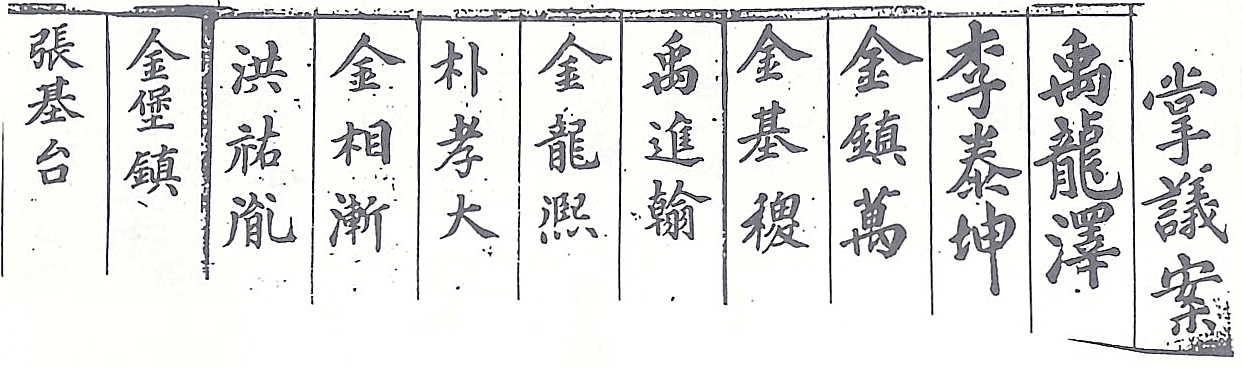 掌議案
禹龍澤
李泰坤
金鎮萬
金基稷
禹進翰
金龍熙
朴孝大
金相漸
洪祐胤
金堡鎮
張基台